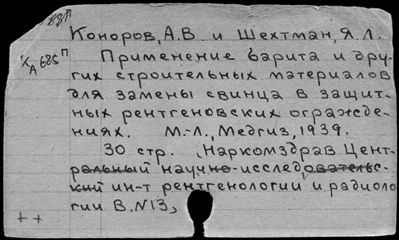 Коноров, А.В. и Шехтман, Я.Л.
Применение барита и дру-
гих строительных материалов
для замены свинца в защит-
ных рентгеновских огражде-
ниях. М.-Л., Медгиз, 1939.
30 стр. (Наркомздрав Цент-
ральный научно-исследовательс-
кий ин-т рентгенологии и радиоло
гии В. N13)
++